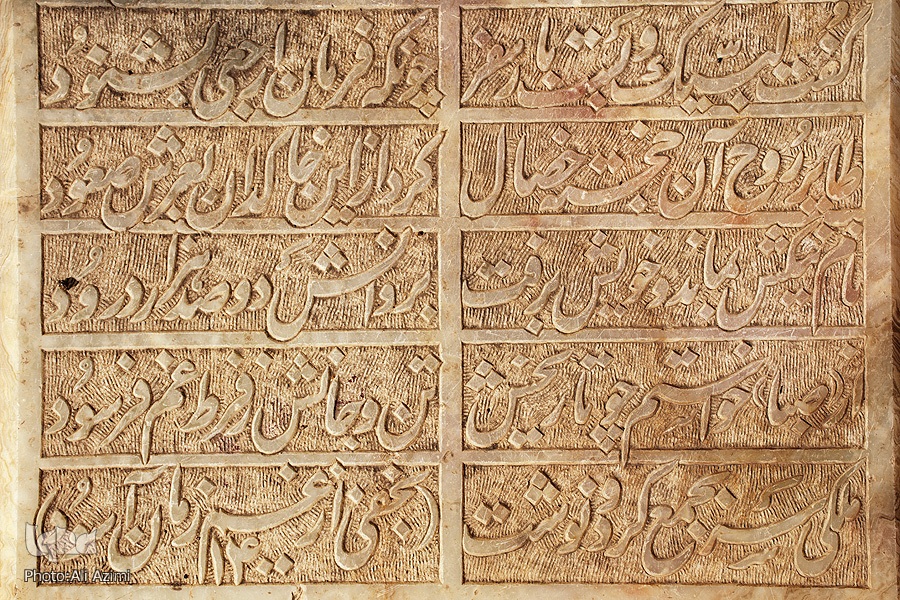 گفت لبیک و بار سفر
چونکه فرمان ارجعی بشنود
طایر روح آن خجسته خصال
کرد از این خاکدان بعرش صعود
نام نیکش بماند و خویش برفت
بر روانش دو صد هزار درود
از (صبا) خواستم چو تاریخش
تن و جانش ز فرط غم فرسود
سر بجمع کرد و نوشت
(نجفی از غم زمان آسود)
Photo:Ali Azimi